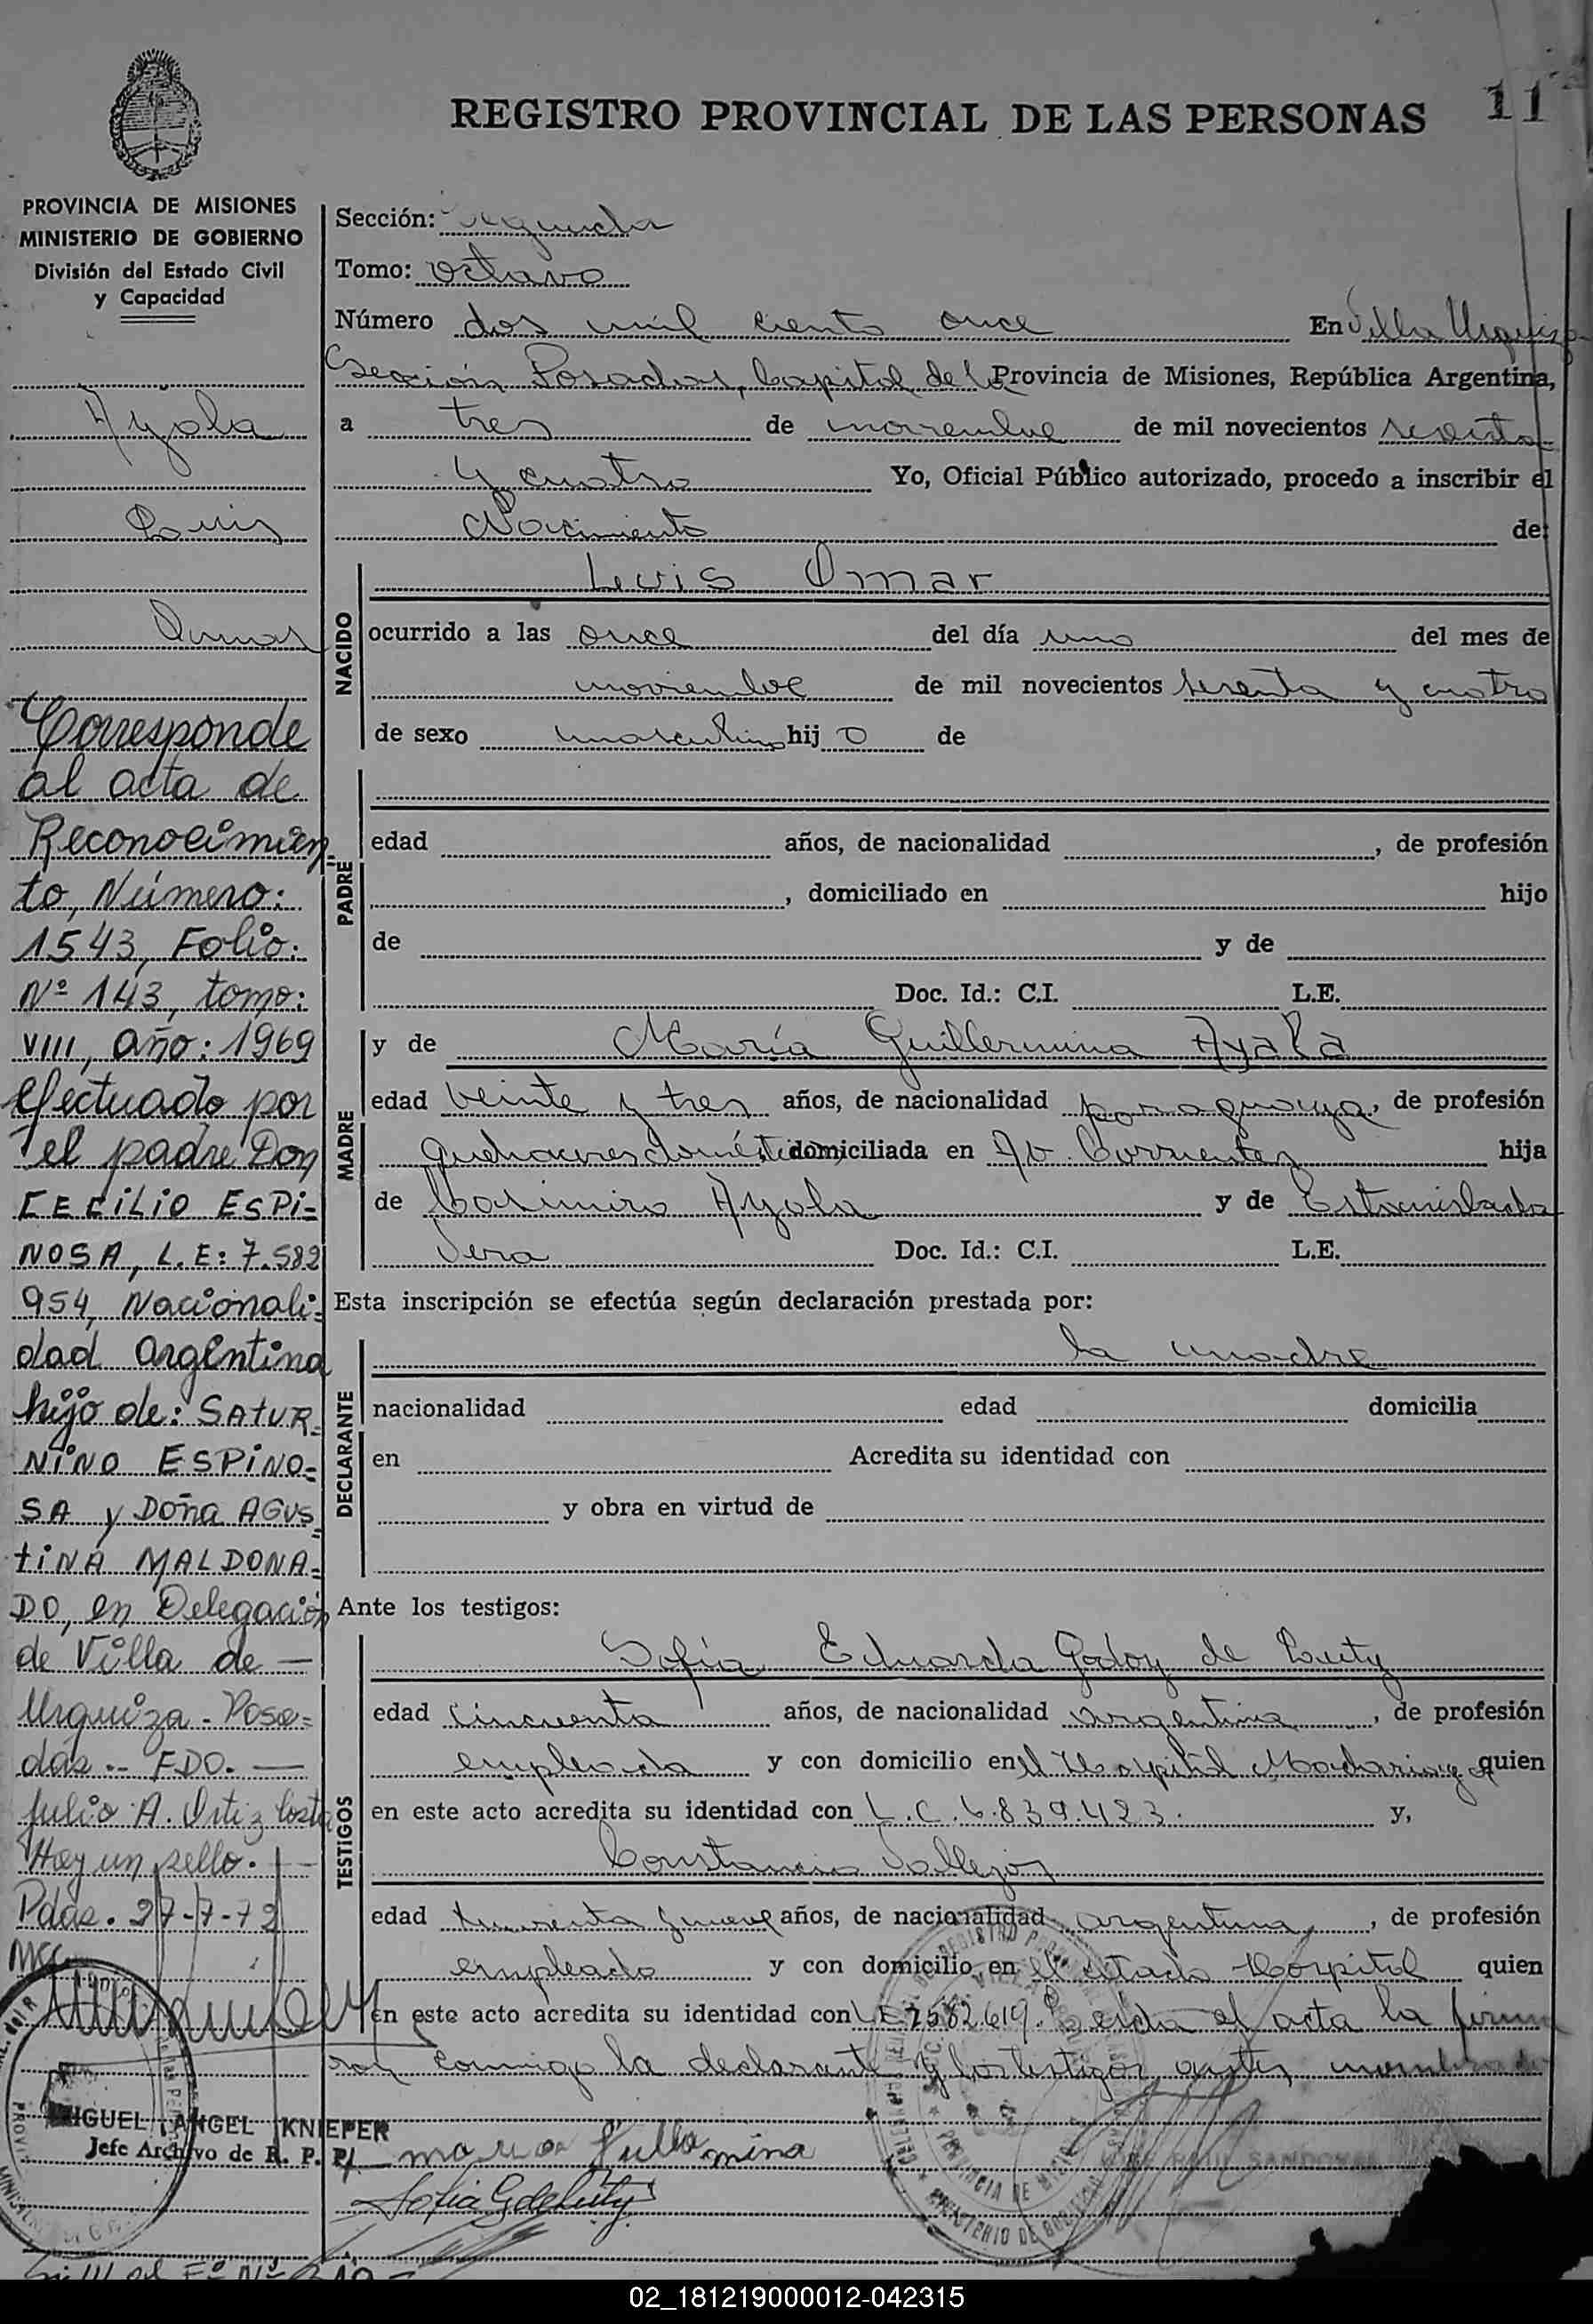 REGISTRO PROVINCIAL DE LAS PERSONAS 11
PROVINCIA DE MISIONES
MINISTERIO DE GOBIERNO
División del Estado Civil
y Capacidad
Ayala
Luis
Omar
Corresponde
al acta de
Reconocimien
to, Número:
1543, Folio:
Nº 143, tomo:
VIII, año: 1969
efectuado por
el padre Don
CECILIO ESPI=
NOSA, L.E: 7.582
954, Nacionali=
dad argentina
hijo de: SATUR=
NINO ESPINO=
SA y Doña AGUS=
TINA MALDONA=
DO, en Delegación
de Villa de —
Urquiza - Posa=
das -- FDO. —
Julio A. Ortiz Costa
Hay un sello. —
Pdas. 27-7-72
MIGUEL ANGEL KNIEPER
Jefe Archivo de R. P. P.
Sección: Segunda
Tomo: Octavo
Número dos mil ciento once En Villa Urquiza
Sección Posadas, Capital de la Provincia de Misiones, República Argentina,
a tres de noviembre de mil novecientos sesenta
y cuatro Yo, Oficial Público autorizado, procedo a inscribir el
Nacimiento de:
NACIDO
Luis Omar
ocurrido a las once del día uno del mes de
noviembre de mil novecientos sesenta y cuatro
de sexo masculino hij o de
PADRE
edad años, de nacionalidad , de profesión
, domiciliado en hijo
de y de
Doc. Id.: C.I. L.E.
MADRE
y de María Guillermina Ayala
edad veinte y tres años, de nacionalidad paraguaya, de profesión
quehaceres domésticos domiciliada en Av. Corrientes hija
de Casimiro Ayala y de Estanislada
Vera Doc. Id.: C.I. L.E.
Esta inscripción se efectúa según declaración prestada por:
DECLARANTE
la madre
nacionalidad edad domicilia
en Acredita su identidad con
y obra en virtud de
Ante los testigos:
TESTIGOS
Sofía Eduarda Godoy de
edad cincuenta años, de nacionalidad argentina, de profesión
empleada y con domicilio en el Hospital Madariaga quien
en este acto acredita su identidad con L.C. 6.839.423. y,
Constancio Vallejos
edad y nueve años, de nacionalidad argentina, de profesión
empleado y con domicilio en el citado Hospital quien
en este acto acredita su identidad con L.E 7582619. Leida el acta la firma
ron conmigo la declarante y los testigos antes nombrados
maria
RAUL SANDOVAL
PROVINCIA DE MISIONES
MINISTERIO DE GOBIERNO
02_181219000012-042315